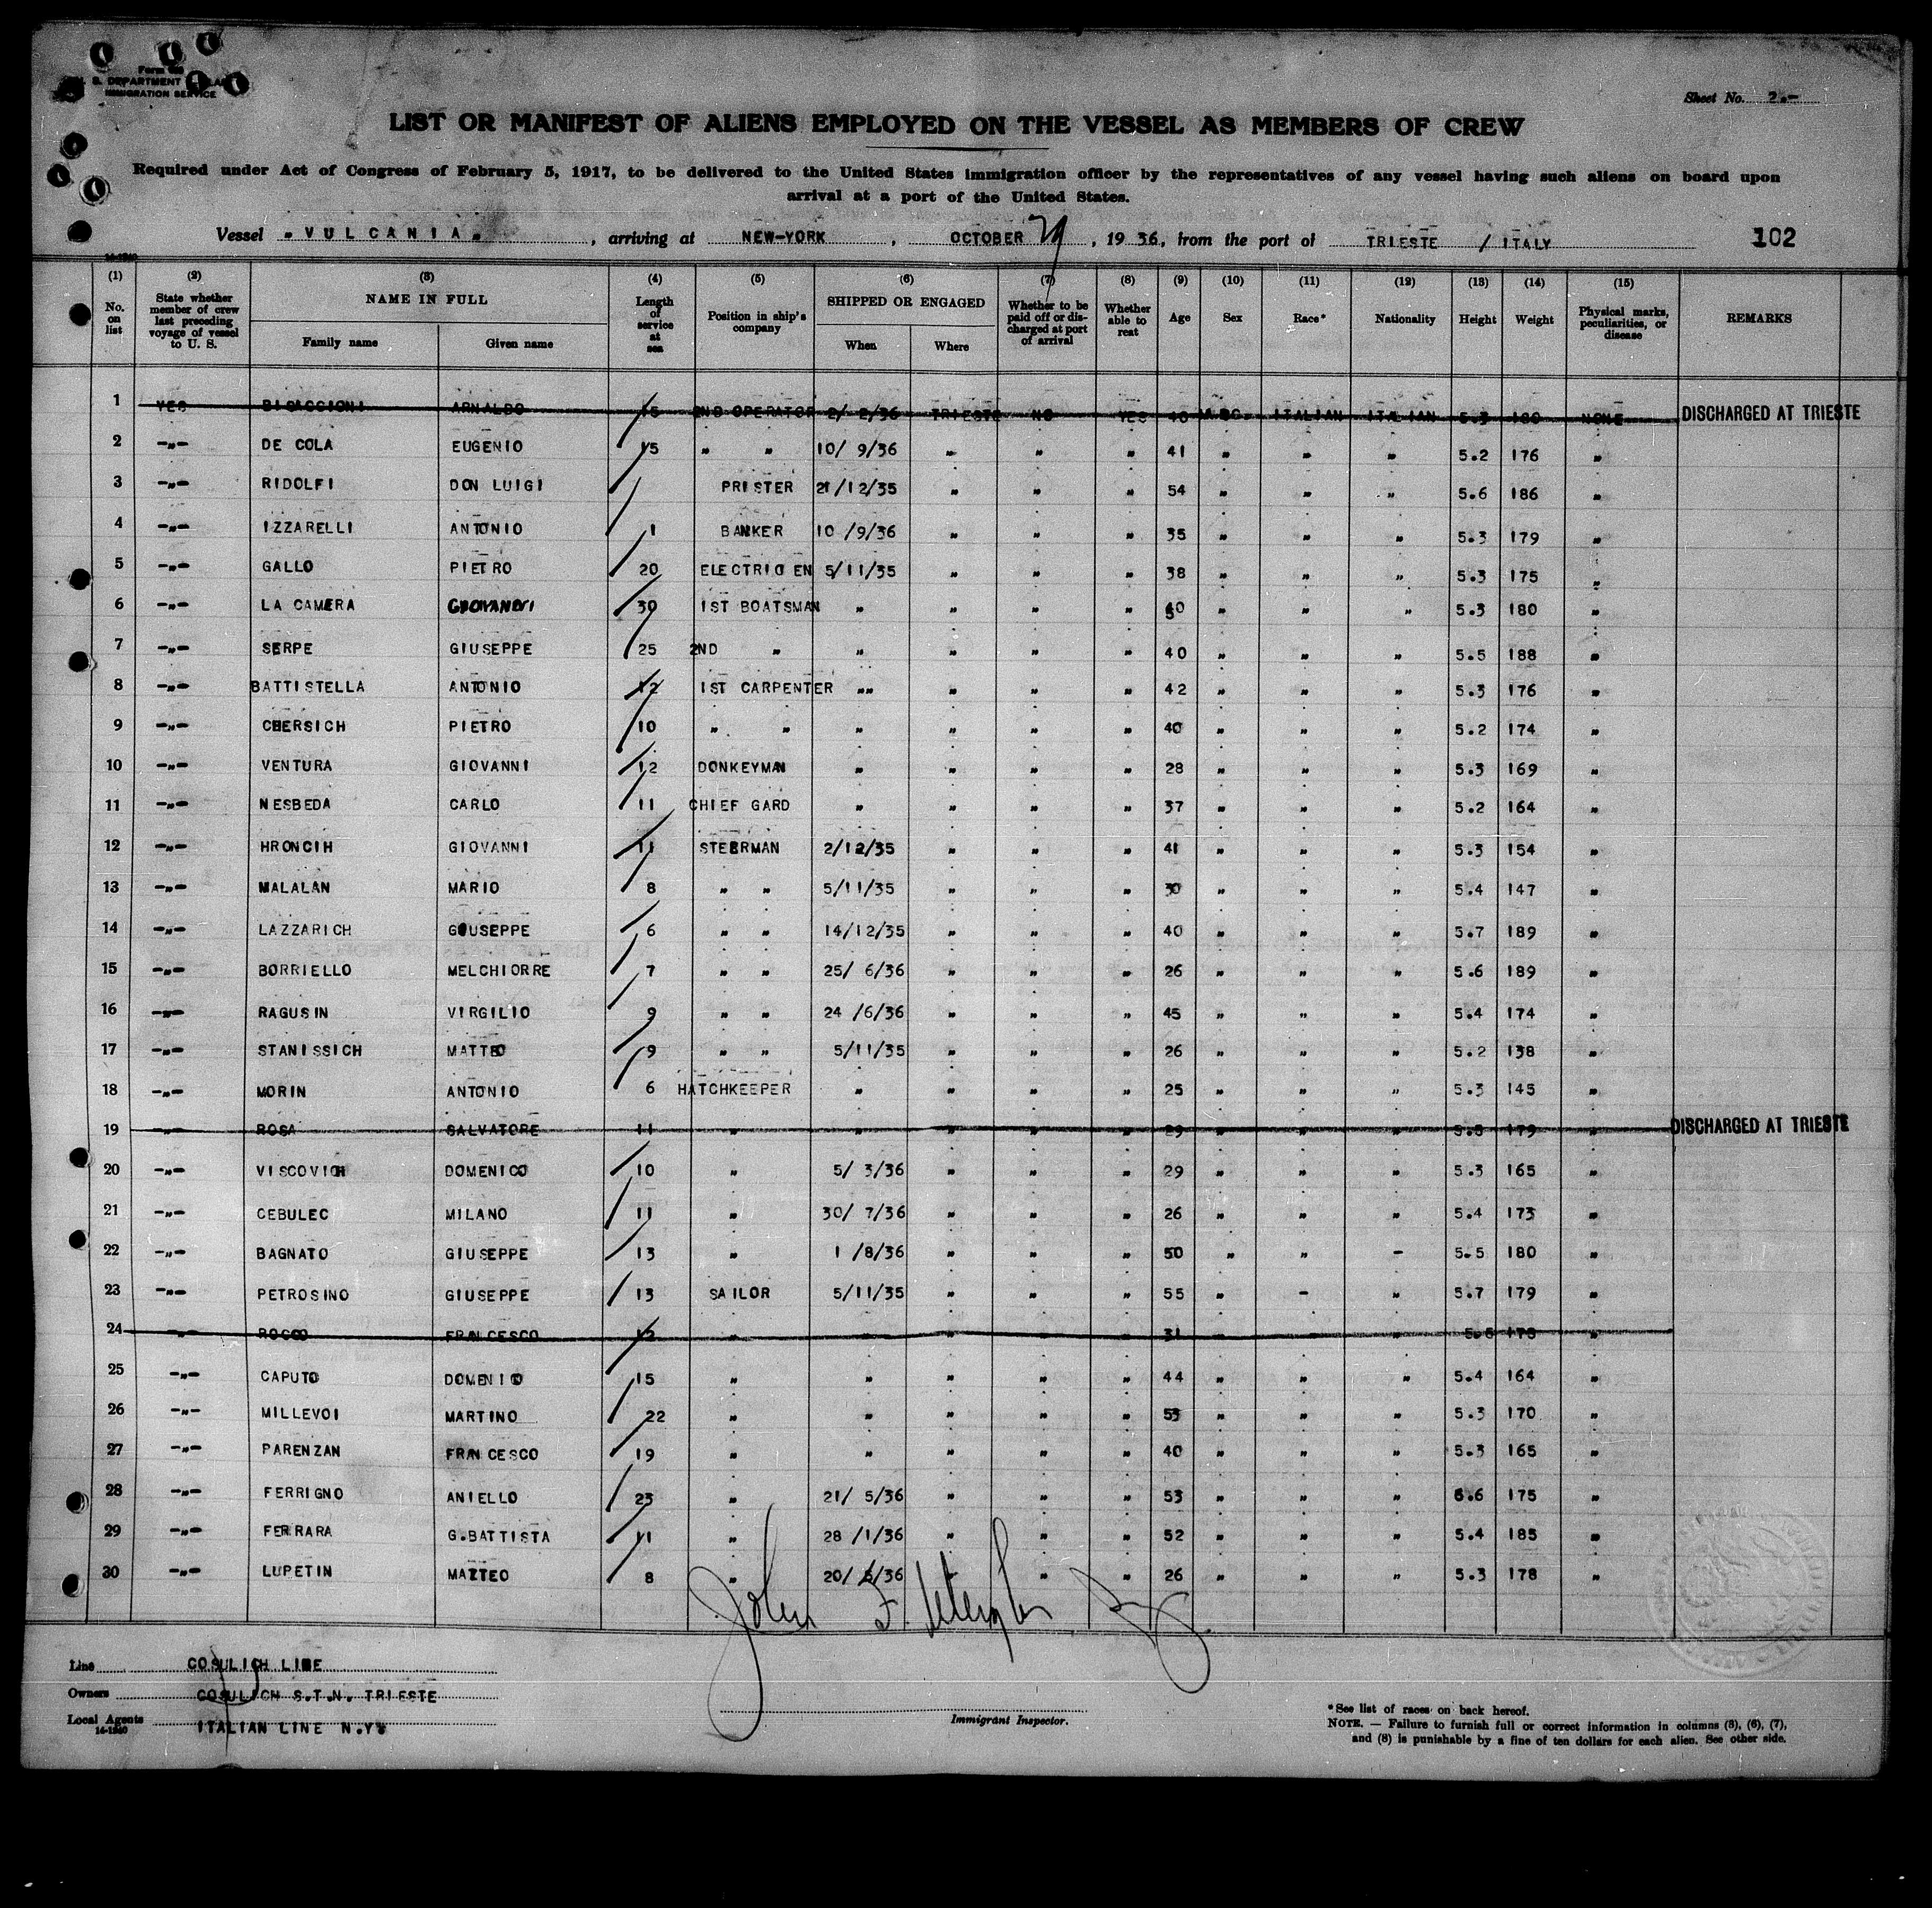 Form
S. DEPARTMENT
IMMIGRATION SERVICE
Sheet No. 2.-
LIST OR MANIFEST OF ALIENS EMPLOYED ON THE VESSEL AS MEMBERS OF CREW
Required under Act of Congress of February 5, 1917, to be delivered to the United States immigration officer by the representatives of any vessel having such aliens on board upon
arrival at a port of the United States.
Vessel "VULCANIA", arriving at NEW-YORK, OCTOBER 29, 1936, from the port of TRIESTE / ITALY 102
(1) (2) (3) (4) (5) (6) (7) (8) (9) (10) (11) (12) (13) (14) (15)
No. on list State whether member of crew last preceding voyage of vessel to U. S. NAME IN FULL Family name Given name Length of service at sea Position in ship's company SHIPPED OR ENGAGED When Where Whether to be paid off or discharged at port of arrival Whether able to reat Age Sex Race* Nationality Height Weight Physical marks, peculiarities, or disease REMARKS
1 YES ARNALDO 15 2ND OPERATOR 2/ 2/36 TRIESTE NO YES 40 ITALIAN ITALIAN 5.3 NONE DISCHARGED AT TRIESTE
2 -"- DE COLA EUGENIO 15 " " 10/ 9/36 " " " 41 " " " 5.2 176 "
3 -"- RIDOLFI DON LUIGI PRISTER 21/12/35 " " " 54 " " " 5.6 186 "
4 -"- IZZARELLI ANTONIO 1 BANKER 10 /9/36 " " " 35 " " " 5.3 179 "
5 -"- GALLO PIETRO 20 ELECTRIC EN 5/11/35 " " " 38 " " " 5.3 175 "
6 -"- LA CAMERA GIOVANNI 30 1ST BOATSMAN " " " " 50 " " " 5.3 180 "
7 -"- SERPE GIUSEPPE 25 2ND " " " " " 40 " " " 5.5 188 "
8 -"- BATTISTELLA ANTONIO 12 1ST CARPENTER "" " " " 42 " " " 5.3 176 "
9 -"- CHERSICH PIETRO 10 " " " " " " 40 " " " 5.2 174 "
10 -"- VENTURA GIOVANNI 12 DONKEYMAN " " " " 28 " " " 5.3 169 "
11 -"- NESBEDA CARLO 11 CHIEF GARD " " " " 37 " " " 5.2 164 "
12 -"- HRONCIH GIOVANNI 11 STEERMAN 2/12/35 " " " 41 " " " 5.3 154 "
13 -"- MALALAN MARIO 8 " " 5/11/35 " " " 30 " " " 5.4 147 "
14 -"- LAZZARICH GIUSEPPE 6 " " 14/12/35 " " " 40 " " " 5.7 189 "
15 -"- BORRIELLO MELCHIORRE 7 " " 25/ 6/36 " " " 26 " " " 5.6 189 "
16 -"- RAGUSIN VIRGILIO 9 " " 24 /6/36 " " " 45 " " " 5.4 174 "
17 -"- STANISSICH MATTEO 9 " " 5/11/35 " " " 26 " " " 5.2 138 "
18 -"- MORIN ANTONIO 6 HATCHKEEPER " " " " 25 " " " 5.3 145 "
19 -"- ROSA SALVATORE 11 " " " " " 29 " " " 179 " DISCHARGED AT TRIESTE
20 -"- VISCOVICH DOMENICO 10 " 5/ 3/36 " " " 29 " " " 5.3 165 "
21 -"- CEBULEC MILANO 11 " 30/ 7/36 " " " 26 " " " 5.4 173 "
22 -"- BAGNATO GIUSEPPE 13 " 1 /8/36 " " " 50 " " - 5.5 180 "
23 -"- PETROSINO GIUSEPPE 13 SAILOR 5/11/35 " " " 55 " - " 5.7 179 "
24 -"- ROCCO FRANCESCO 12 " " " " " 31 " " " "
25 -"- CAPUTO DOMENICO 15 " " " " " 44 " " " 5.4 164 "
26 -"- MILLEVOI MARTINO 22 " " " " " 53 " " " 5.3 170 "
27 -"- PARENZAN FRANCESCO 19 " " " " " 40 " " " 5.3 165 "
28 -"- FERRIGNO ANIELLO 23 " 21/ 5/36 " " " 53 " " " 6.6 175 "
29 -"- FERRARA G.BATTISTA 11 " 28 /1/36 " " " 52 " " " 5.4 185 "
30 -"- LUPETIN MATTEO 8 " 20/ 5/36 " " " 26 " " " 5.3 178 "
John F.
Line COSULICH LINE
Owners COSULICH S.T.N. TRIESTE
Local Agents ITALIAN LINE N.Y.
14-1240
Immigrant Inspector.
*See list of races on back hereof.
NOTE. — Failure to furnish full or correct information in columns (3), (6), (7),
and (8) is punishable by a fine of ten dollars for each alien. See other side.